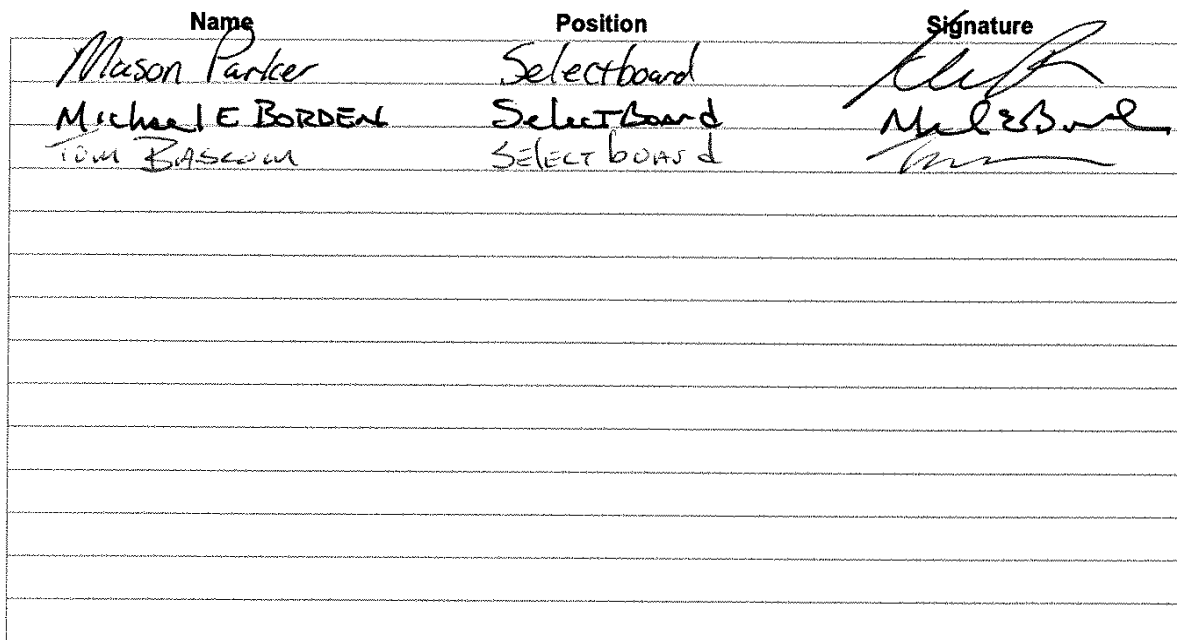 Name Position Signature
Mason Parker Selectboard
Michael E BORDEN SelectBoard
Tom BASCOM SElECT bOARd